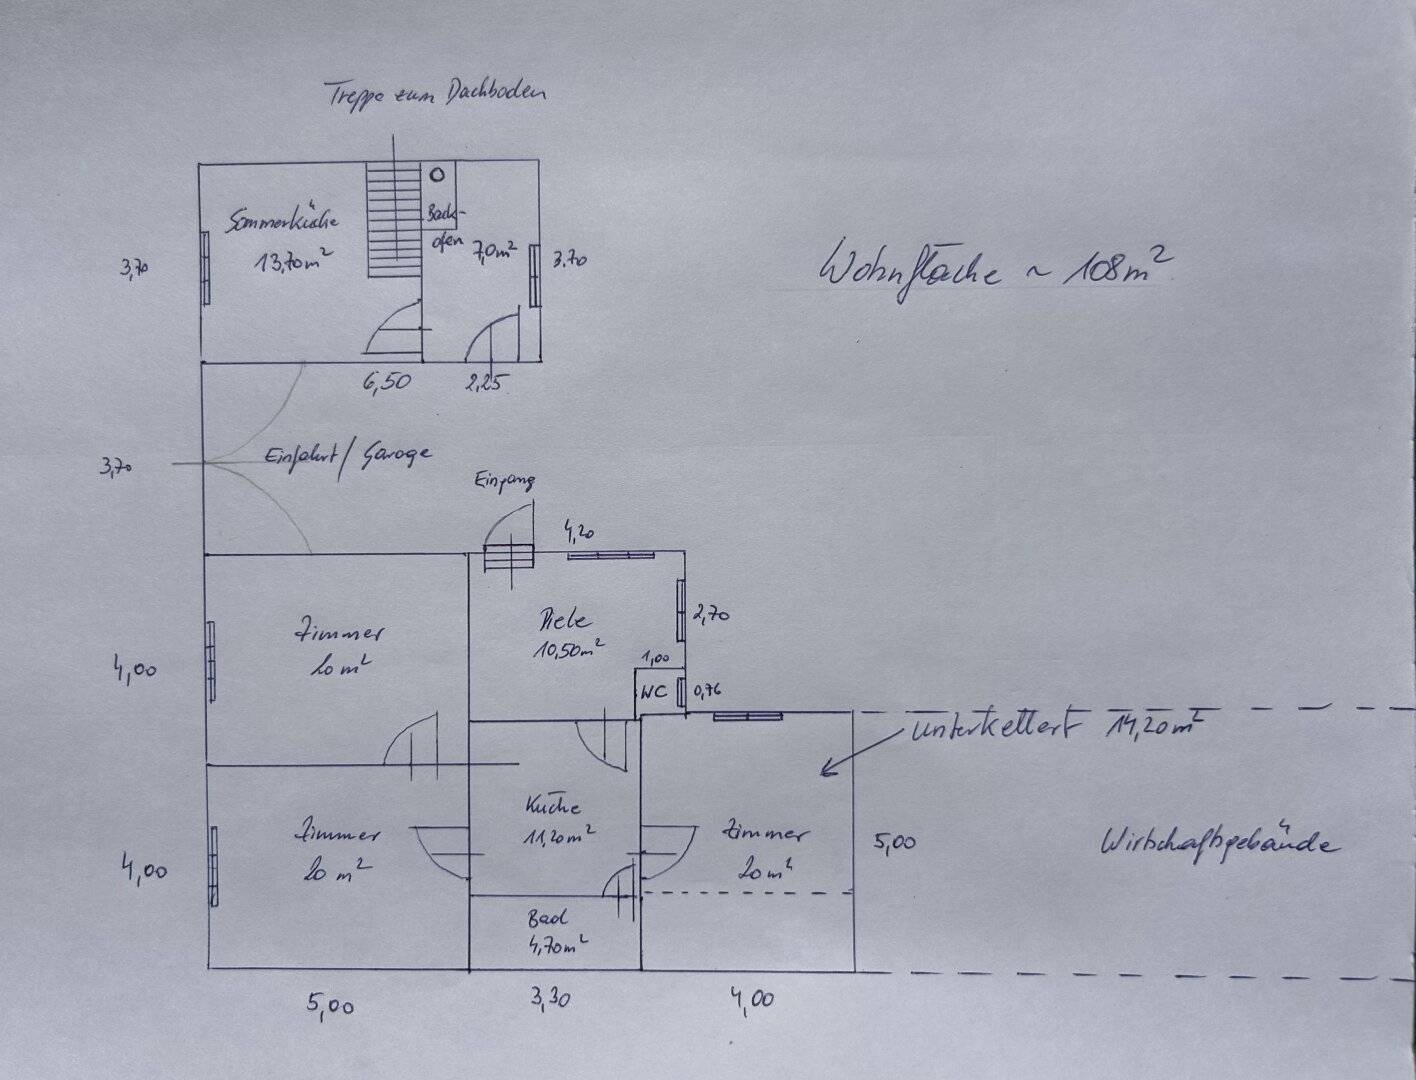 Treppe zum Dachboden
Sommerküche
13,70m²
Back-
ofen
7,0m²
3,70
3,70
Wohnfläche ~ 108m²
6,50
2,25
3,70
Einfahrt / Garage
Eingang
4,20
Zimmer
20 m²
Diele
10,50m²
2,70
4,00
1,00
WC
0,76
unterkellert 14,20m²
Küche
11,20m²
Zimmer
20 m²
Zimmer
20 m²
4,00
5,00
Wirtschaftsgebäude
Bad
4,70m²
5,00
3,30
4,00